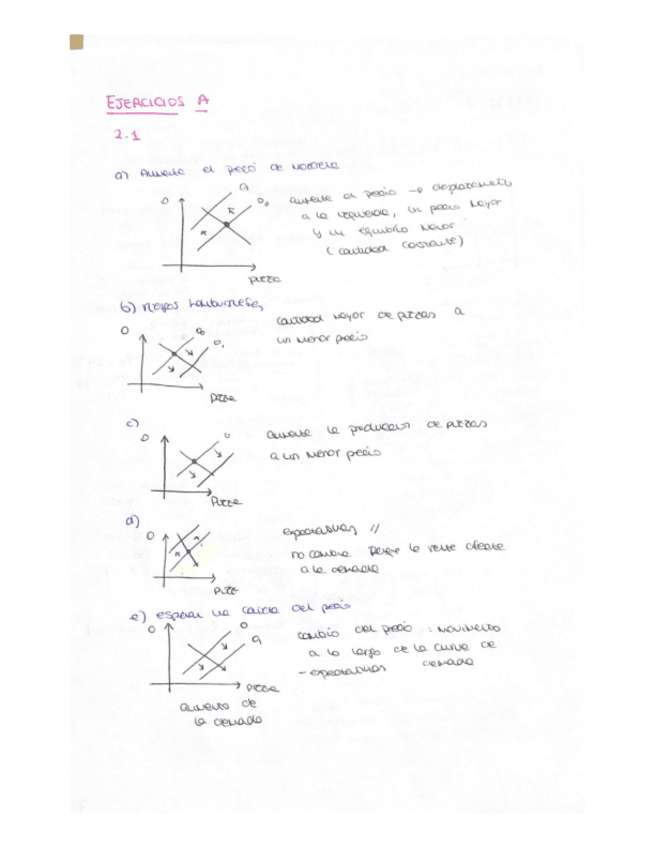 EJERCICIOS A
2.1
a) Aumenta el precio de mozzarella
O
O₁
O₀
pizza
aumenta el precio → desplazamiento
a la izquierda, un precio mayor
y un equilibrio menor
(cantidad constante)
b) menos hamburguesas
O
O₀
O₁
pizza
cantidad mayor de pizzas a
un menor precio
c)
O
O
Pizza
aumenta la producción de pizzas
a un menor precio
d)
O
expectativas //
no cambia la renta afecta
a la demanda
e) esperar una caída del precio
O
O
O₁
pizza
aumento de
la demanda
cambio del precio : movimiento
a lo largo de la curva de
demanda
- expectativas